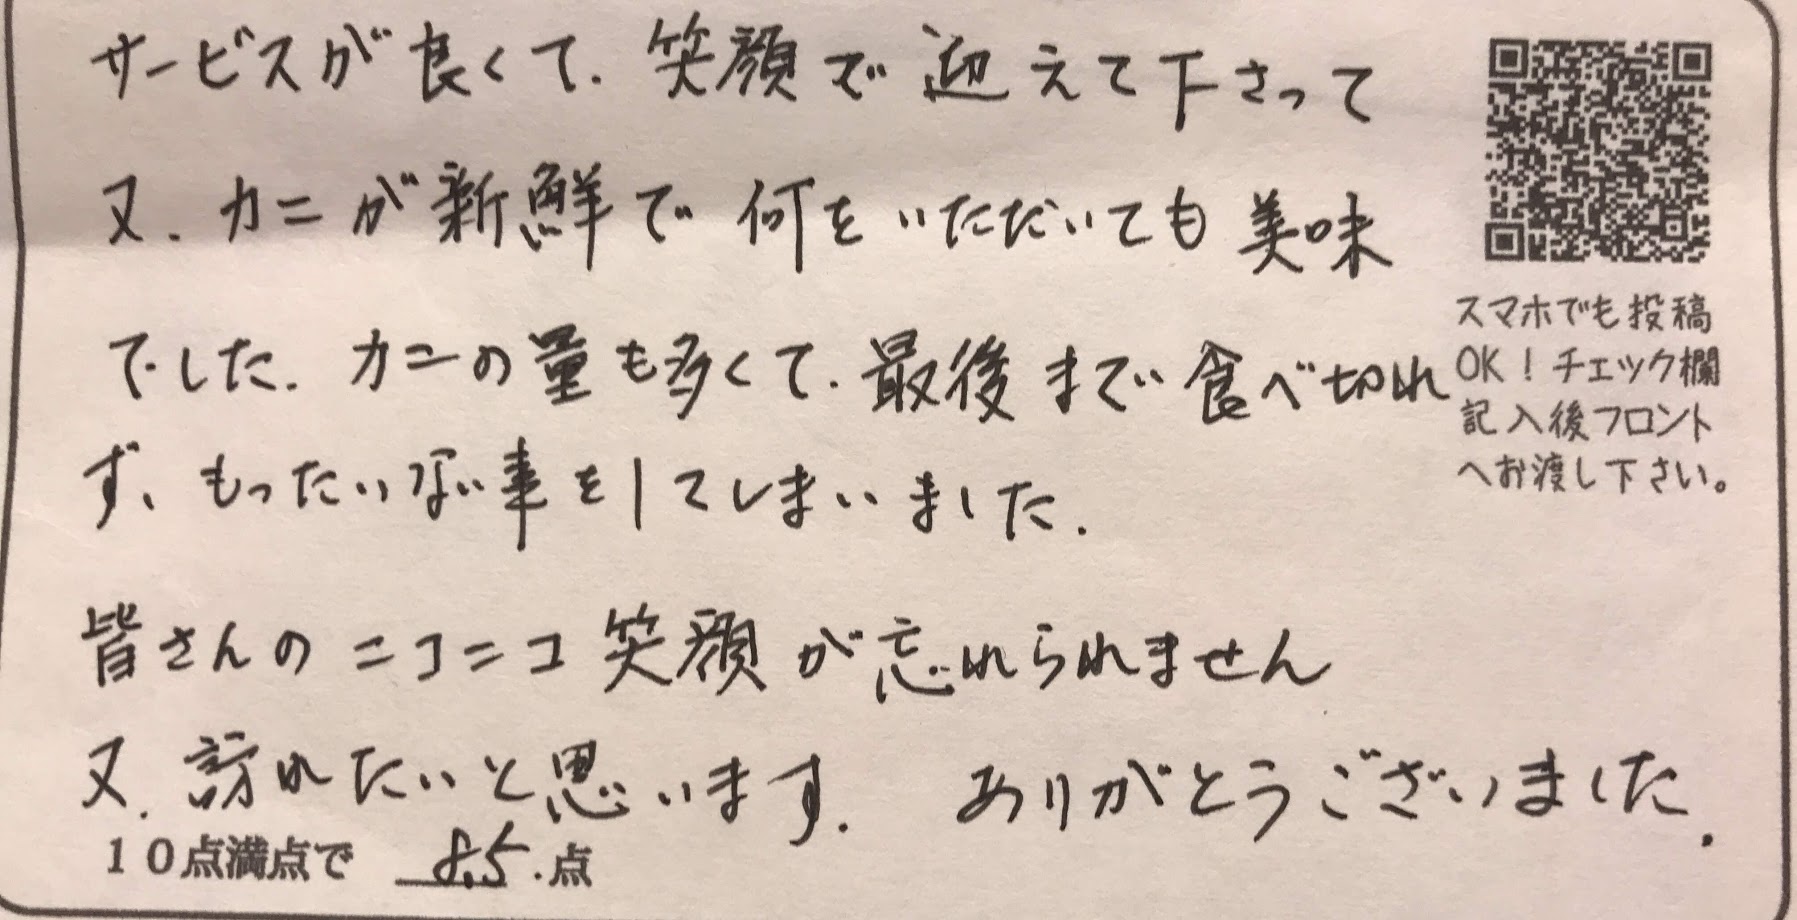 サービスが良くて、笑顔で迎えて下さって
又、カニが新鮮で何をいただいても美味
でした。カニの量も多くて、最後まで食べ切れ
ず、もったいない事をしてしまいました。
皆さんのニコニコ笑顔が忘れられません
又、訪れたいと思います。ありがとうございました。
10点満点で 8.5.点
スマホでも投稿
OK!チェック欄
記入後フロント
へお渡し下さい。